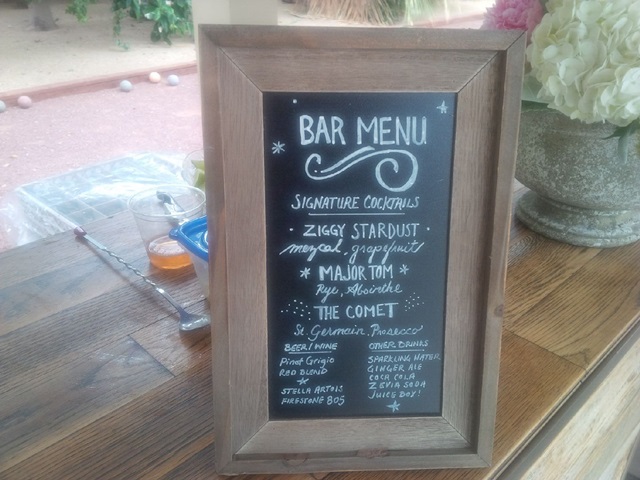 BAR MENU
SIGNATURE COCKTAILS
· ZIGGY STARDUST ·
mezcal, grapefruit
* MAJOR TOM *
Rye, Absinthe
THE COMET
St. Germain, Prosecco
BEER/WINE
Pinot Grigio
RED BLEND
STELLA ARTOIS
FIRESTONE 805
OTHER DRINKS
SPARKLING WATER
GINGER ALE
COCA COLA
ZEVIA SODA
JUICE BOX!